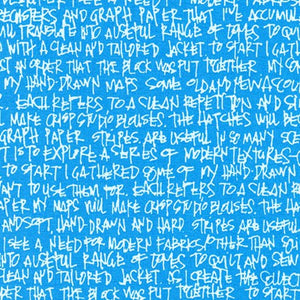 REGISTERS AND GRAPH PAPER THAT I'VE ACCUMUL
WILL TRANSLATE INTO A USEFUL RANGE OF TONES TO QUILT
A WITH A CLEAN AND TAILORED JACKET TO START I GAT
ST AN ORDER THAT THE BLOCK WAS PUT TOGETHER MY CON
MY HAND-DRAWN MAPS SOME OLD AND NEW
EACH REFERS TO A CLEAN REPETITION AND
L MAKE CRISP STUDIO BLOUSES. THE HATCHES WILL BE
GRAPH PAPER STRIPES ARE USEFUL IN SO MANY SCE
T IS TO EXPLORE A SERIES OF MODERN TEXTURES
TO START I GATHERED SOME OF MY HAND-DRAWN
ANT TO USE THEM FOR. EACH REFERS TO A CLEAN RE
APER MY MAPS WILL MAKE CRISP STUDIO BLOUSES. THE HA
HARD AND SOFT, HAND-DRAWN AND HARD STRIPES ARE USEFUL
I SEE A NEED FOR MODERN FABRICS OTHER THAN SOL
INTO A USEFUL RANGE OF TONES TO QUILT AND SEW
CLEAN AND TAILORED JACKET. AS I CREATE THIS COLLEC
R THAT THE BLOCK WAS PUT TOGETHER TO START